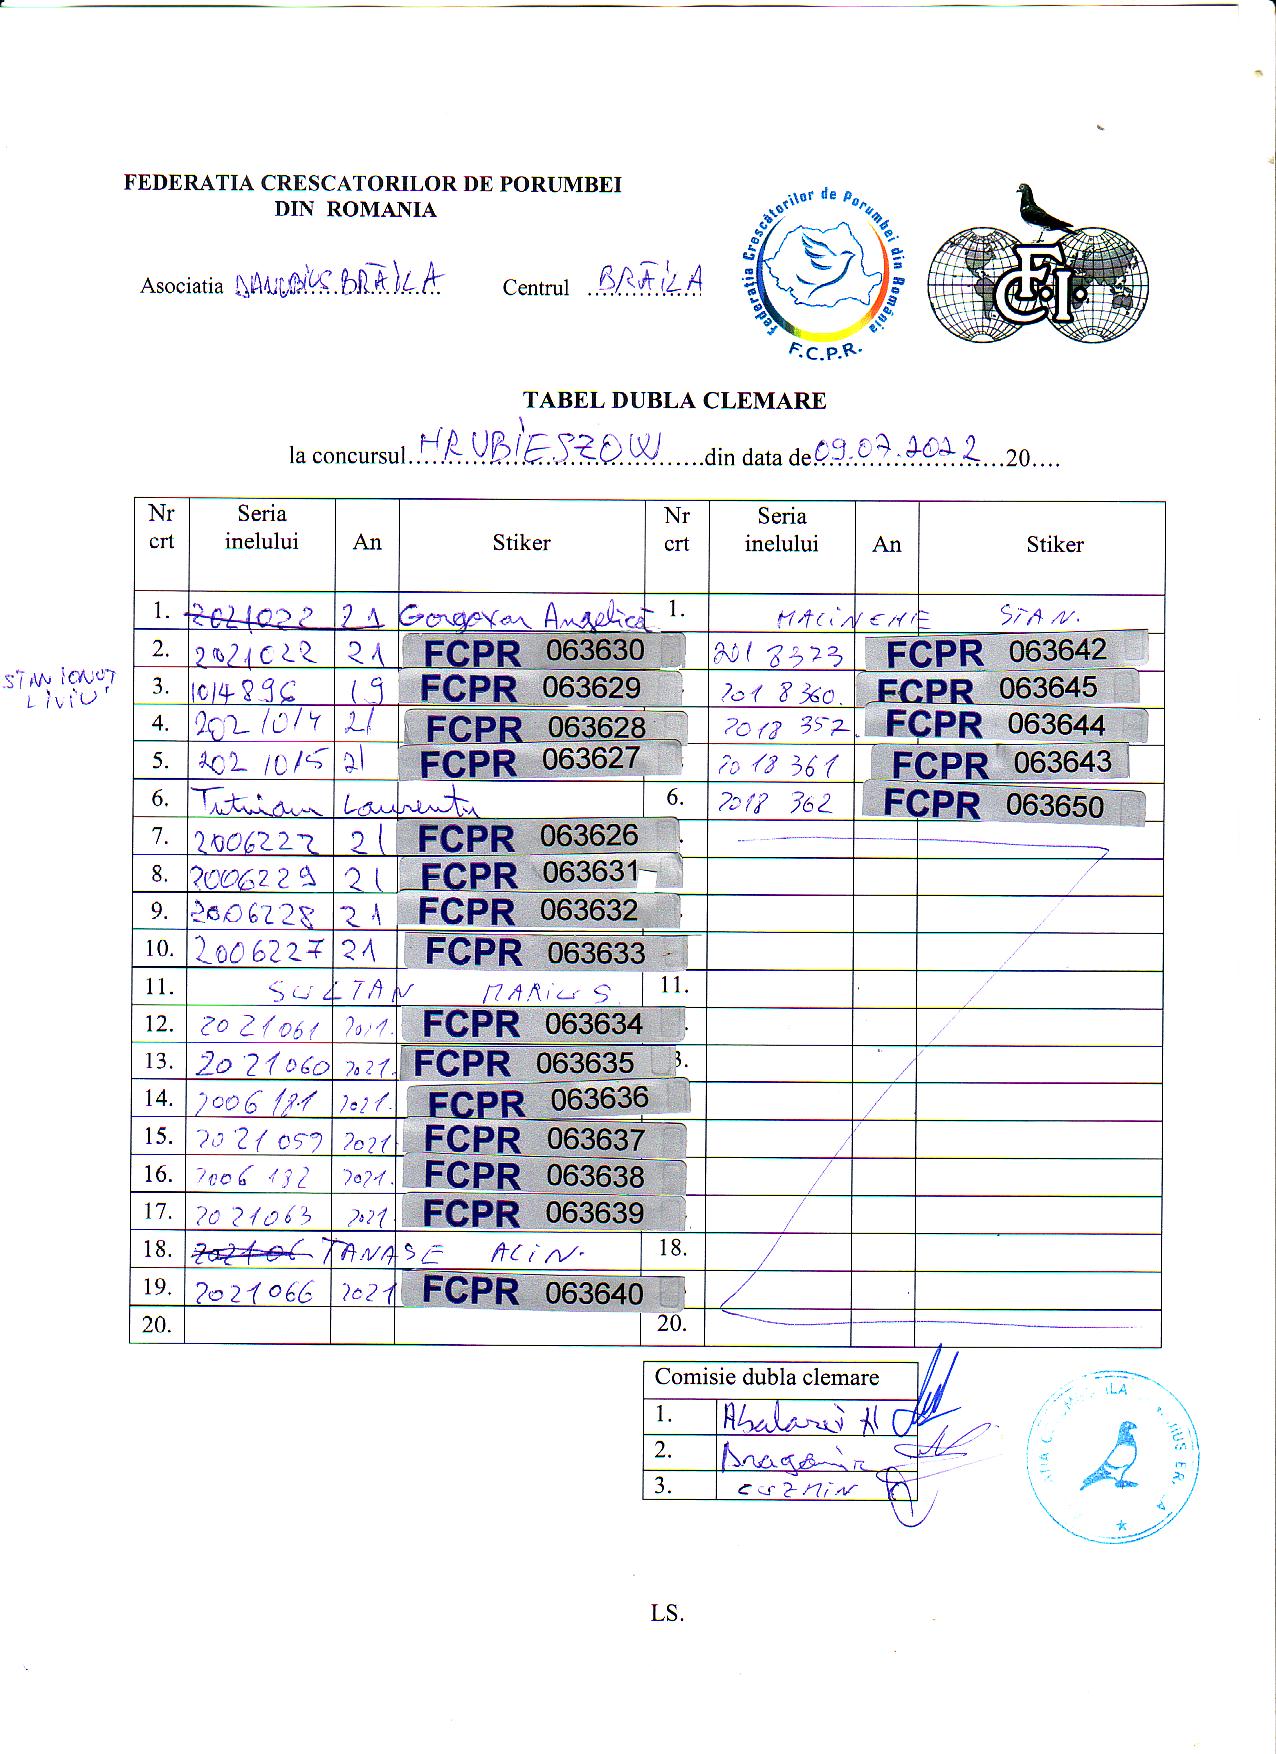 FEDERATIA CRESCATORILOR DE PORUMBEI
DIN ROMANIA
Asociatia DANUBIUS BRĂILA Centrul BRĂILA
Federația Crescătorilor de Porumbei din România
F.C.P.R.
F.C.I.
TABEL DUBLA CLEMARE
la concursul HRUBIESZOW din data de 09.07.2022 20....
Nr crt Seria inelului An Stiker Nr crt Seria inelului An Stiker
1. 2021022 21 Angelica 1. MACINENE STAN.
2. 2021022 21 FCPR 063630 2018373 FCPR 063642
STAN IONUT LIVIU
3. 1014896 19 FCPR 063629 2018360. FCPR 063645
4. 2021014 21 FCPR 063628 2018357. FCPR 063644
5. 2021015 21 FCPR 063627 2018361 FCPR 063643
6. Laurentiu 6. 2018362 FCPR 063650
7. 2006222 21 FCPR 063626
8. 2006229 21 FCPR 063631
9. 2006228 21 FCPR 063632
10. 2006227 21 FCPR 063633
11. SULTAN MARIUS 11.
12. 2021061 2021. FCPR 063634
13. 2021060 2021. FCPR 063635 3.
14. 2006181 2021. FCPR 063636
15. 2021059 2021 FCPR 063637
16. 2006132 2021. FCPR 063638
17. 2021063 2021 FCPR 063639
18. 202106 TANASE ALIN. 18.
19. 2021066 2021 FCPR 063640
20. 20.
Comisie dubla clemare
1. Abalasei
2. Dragomir
3. COZMIN
LS.